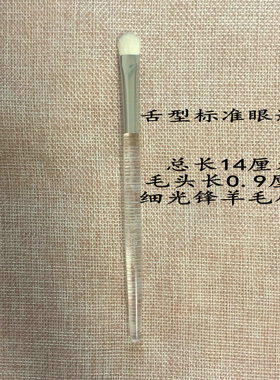 舌型标准眼
总长14厘
毛头长0.9厘
细光锋羊毛